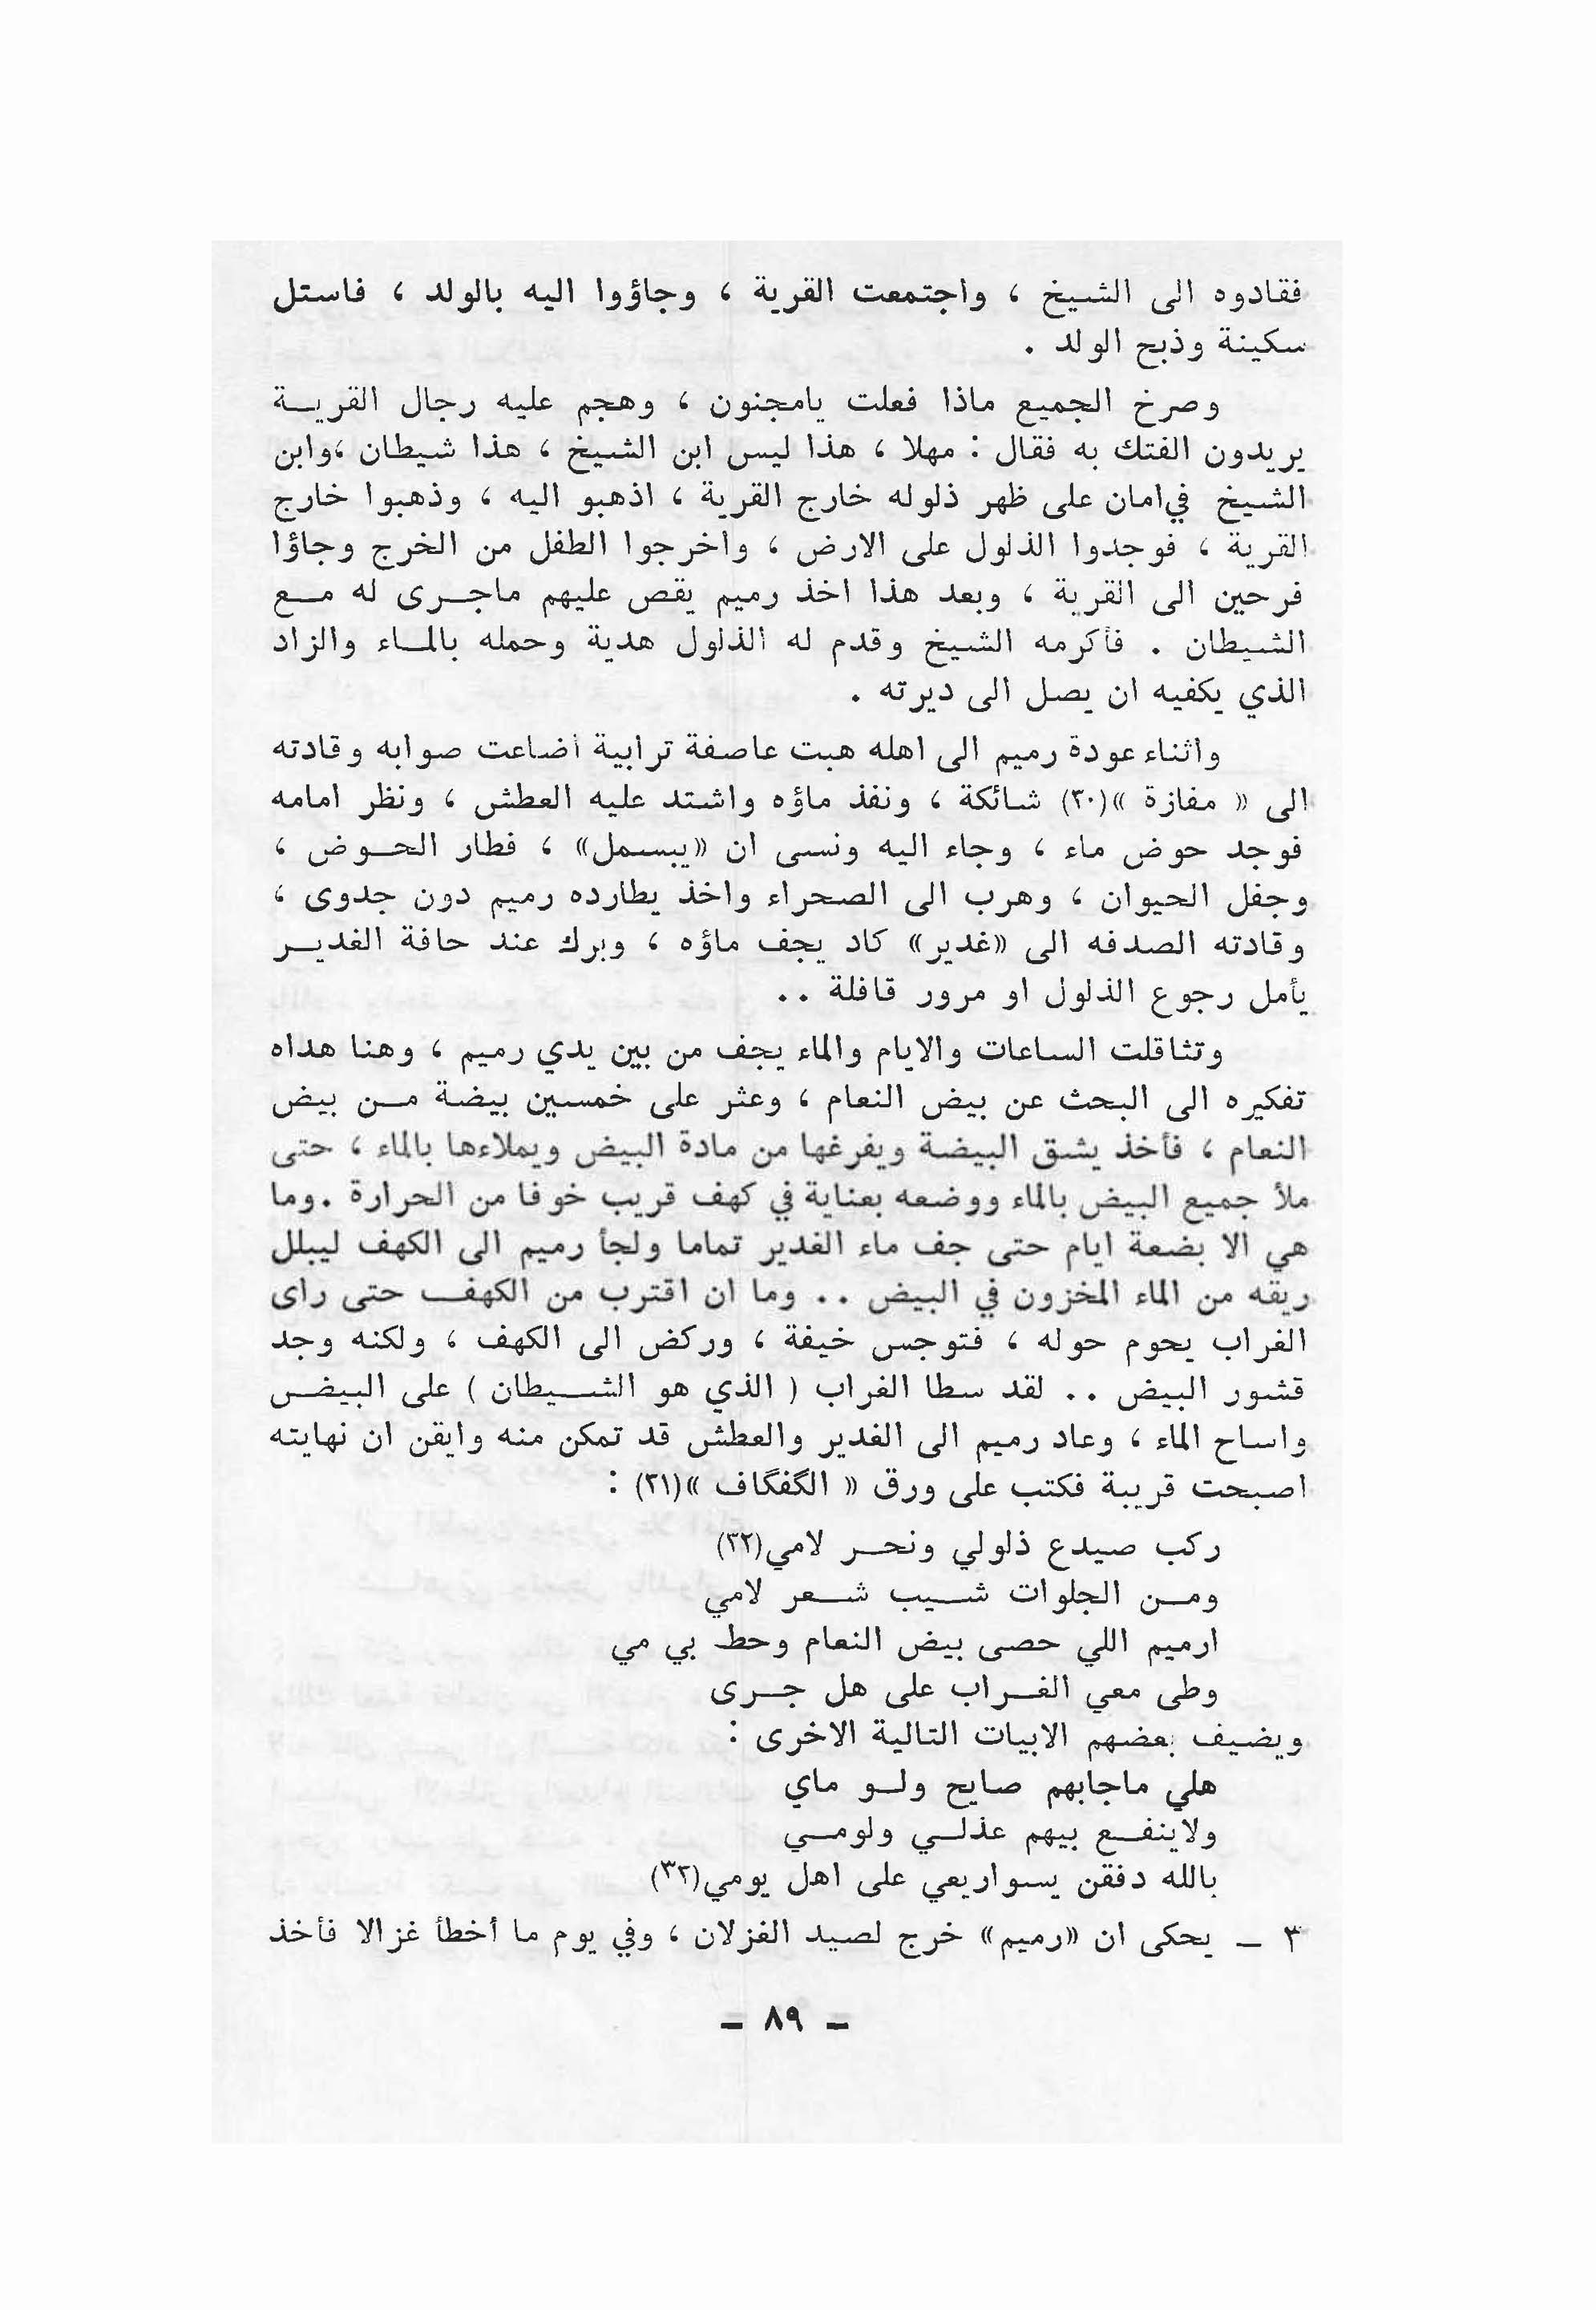 فقادوه الى الشيخ ، واجتمعت القرية ، وجاؤوا اليه بالولد ، فاستل
سكينة وذبح الولد .
وصرخ الجميع ماذا فعلت يامجنون ، وهجم عليه رجال القريـة
يريدون الفتك به فقال : مهلا ، هذا ليس ابن الشيخ ، هذا شيطان ،وابن
الشيخ في امان على ظهر ذلوله خارج القرية ، اذهبو اليه ، وذهبوا خارج
القرية ، فوجدوا الذلول على الارض ، واخرجوا الطفل من الخرج وجاؤا
فرحين الى القرية ، وبعد هذا اخذ رميم يقص عليهم ماجـرى له مـع
الشيطان . فأكرمه الشيخ وقدم له الذلول هدية وحمله بالمـاء والزاد
الذي يكفيه ان يصل الى ديرته .
واثناء عودة رميم الى اهله هبت عاصفة ترابية أضاعت صوابه وقادته
الى « مفازة »(٣٠) شائكة ، ونفذ ماؤه واشتد عليه العطش ، ونظر امامه
فوجد حوض ماء ، وجاء اليه ونسى ان «يبسمل» ، فطار الحـوض ،
وجفل الحيوان ، وهرب الى الصحراء واخذ يطارده رميم دون جدوى ،
وقادته الصدفه الى «غدير» كاد يجف ماؤه ، وبرك عند حافة الغديـر
يأمل رجوع الذلول او مرور قافلة ..
وتثاقلت الساعات والايام والماء يجف من بين يدي رميم ، وهنا هداه
تفكيره الى البحث عن بيض النعام ، وعثر على خمسين بيضة مـن بيض
النعام ، فأخذ يشق البيضة ويفرغها من مادة البيض ويملاءها بالماء ، حتى
ملأ جميع البيض بالماء ووضعه بعناية في كهف قريب خوفا من الحرارة .وما
هي الا بضعة ايام حتى جف ماء الغدير تماما ولجأ رميم الى الكهف ليبلل
ريقه من الماء المخزون في البيض .. وما ان اقترب من الكهف حتى راى
الغراب يحوم حوله ، فتوجس خيفة ، وركض الى الكهف ، ولكنه وجد
قشور البيض .. لقد سطا الغراب ( الذي هو الشـيطان ) على البيض
واساح الماء ، وعاد رميم الى الغدير والعطش قد تمكن منه وايقن ان نهايته
اصبحت قريبة فكتب على ورق « الگفگاف »(٣١) :
ركب صيدع ذلولي ونحـر لامي(٣٢)
ومـن الجلوات شـيب شـعر لامي
ارميم اللي حصى بيض النعام وحط بي مي
وطى معي الغـراب على هل جـرى
ويضيف بعضهم الابيات التالية الاخرى :
هلي ماجابهم صايح ولـو ماي
ولاينفـع بيهم عذلـي ولومـي
بالله دفقن يسواربعي على اهل يومي(٣٣)
٣ ــ يحكى ان «رميم» خرج لصيد الغزلان ، وفي يوم ما أخطأ غزالا فأخذ
– ٨٩ –